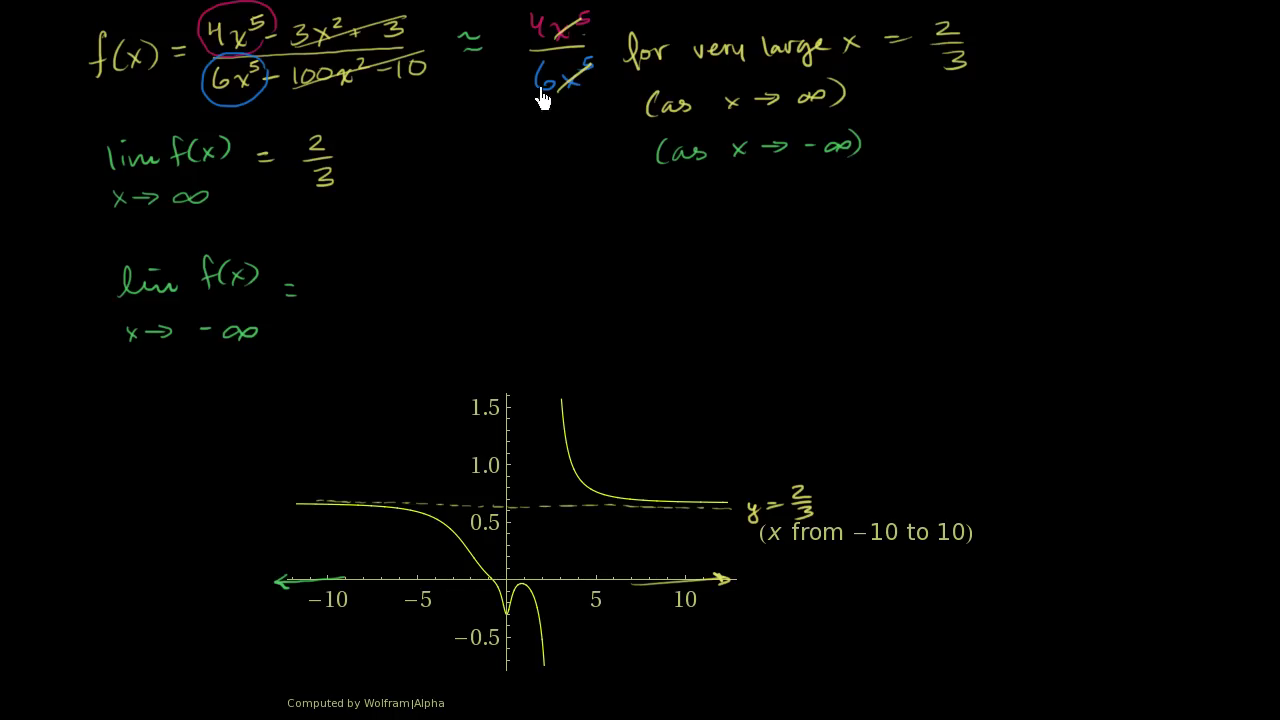 f(x) = (4x⁵ - 3x² + 3)/(6x⁵ - 100x² - 10) ≈ 4x⁵/6x⁵ for very large x = 2/3
(as x → ∞)
(as x → -∞)
lim f(x) = 2/3
x → ∞
lim f(x) =
x → -∞
1.5
1.0
0.5
y = 2/3
(x from −10 to 10)
−10 −5 5 10
−0.5
Computed by Wolfram|Alpha